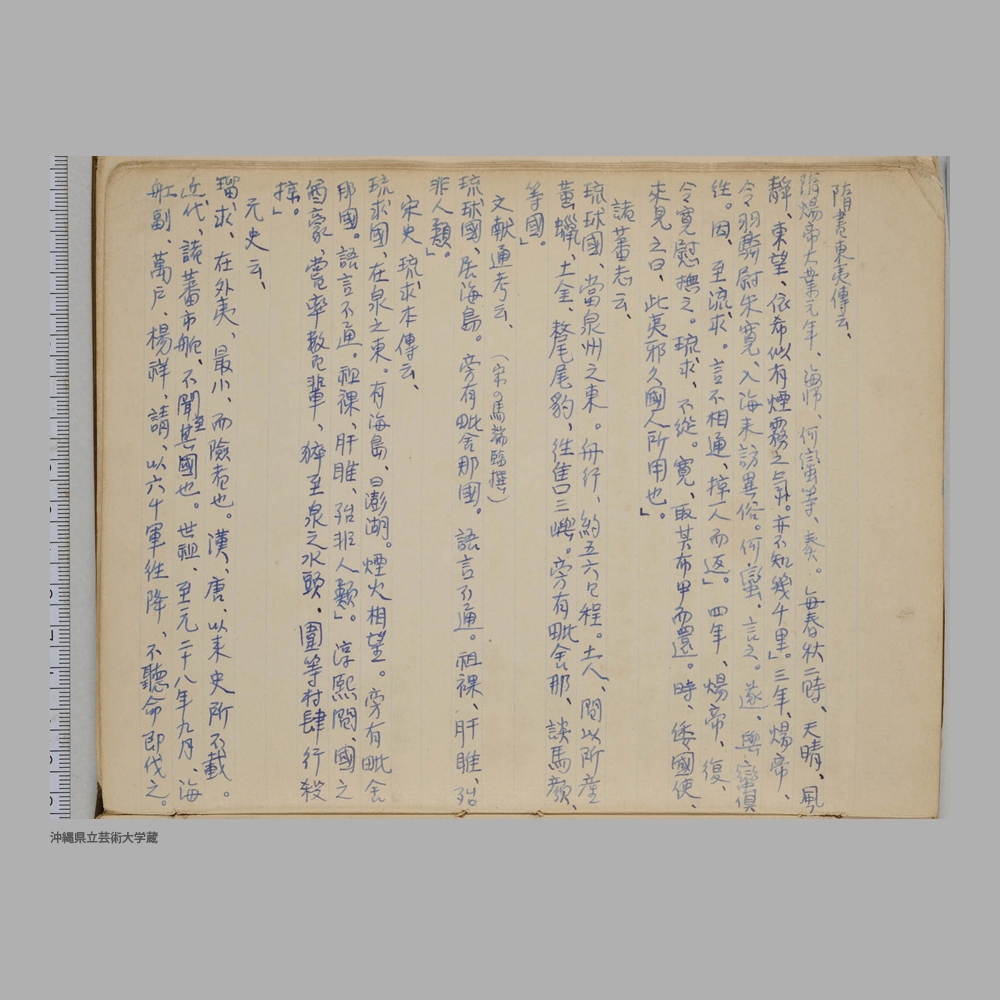 隋書東夷傳云、
隋煬帝大業元年、海師、何蠻等、奏。毎春秋二時、天晴、風
靜、東望、依希似有煙霧之氣。亦不知幾千里」。三年、煬帝、
令羽騎尉朱寛、入海未訪異俗。何蠻、言之。遂、與蠻俱
徃。因、至流求。言不相通、掠一人而返」。四年、煬帝、復、
令寛慰撫之。琉求、不從。寛、取其布甲而還。時、倭國使、
來見之曰、此夷邪久國人所用也」。
諸蕃志云、
琉球國、當泉州之東。舟行、約五六日程。土人、間以所產
黄蠟、土金、氂尾、豹、徃售三嶼。旁有毗舍那、談馬顏、
等國」。
文献通考云、(宋の馬端臨撰)
琉球國、居海島。旁有毗舍那國。語言不通。袒裸、肝睢、殆
非人類」。
宋史、琉求本傳云、
琉求國、在泉之東。有海島、曰澎湖。煙火相望。旁有毗舍
那國。語言不通。袒裸、肝睢、殆非人類」。淳熙間、國之
酋豪、嘗率數百輩、猝至泉之水頭、圍等村肆行殺
掠」。
元史云、
瑠求、在外夷、最小、而險者也。漢、唐、以来史所不載。
近代、諸蕃市舶、不聞至其國也。世祖、至元二十八年九月、海
舡副、萬戸、楊祥、請、以六千軍徃降、不聽命即伐之。
沖縄県立芸術大学蔵